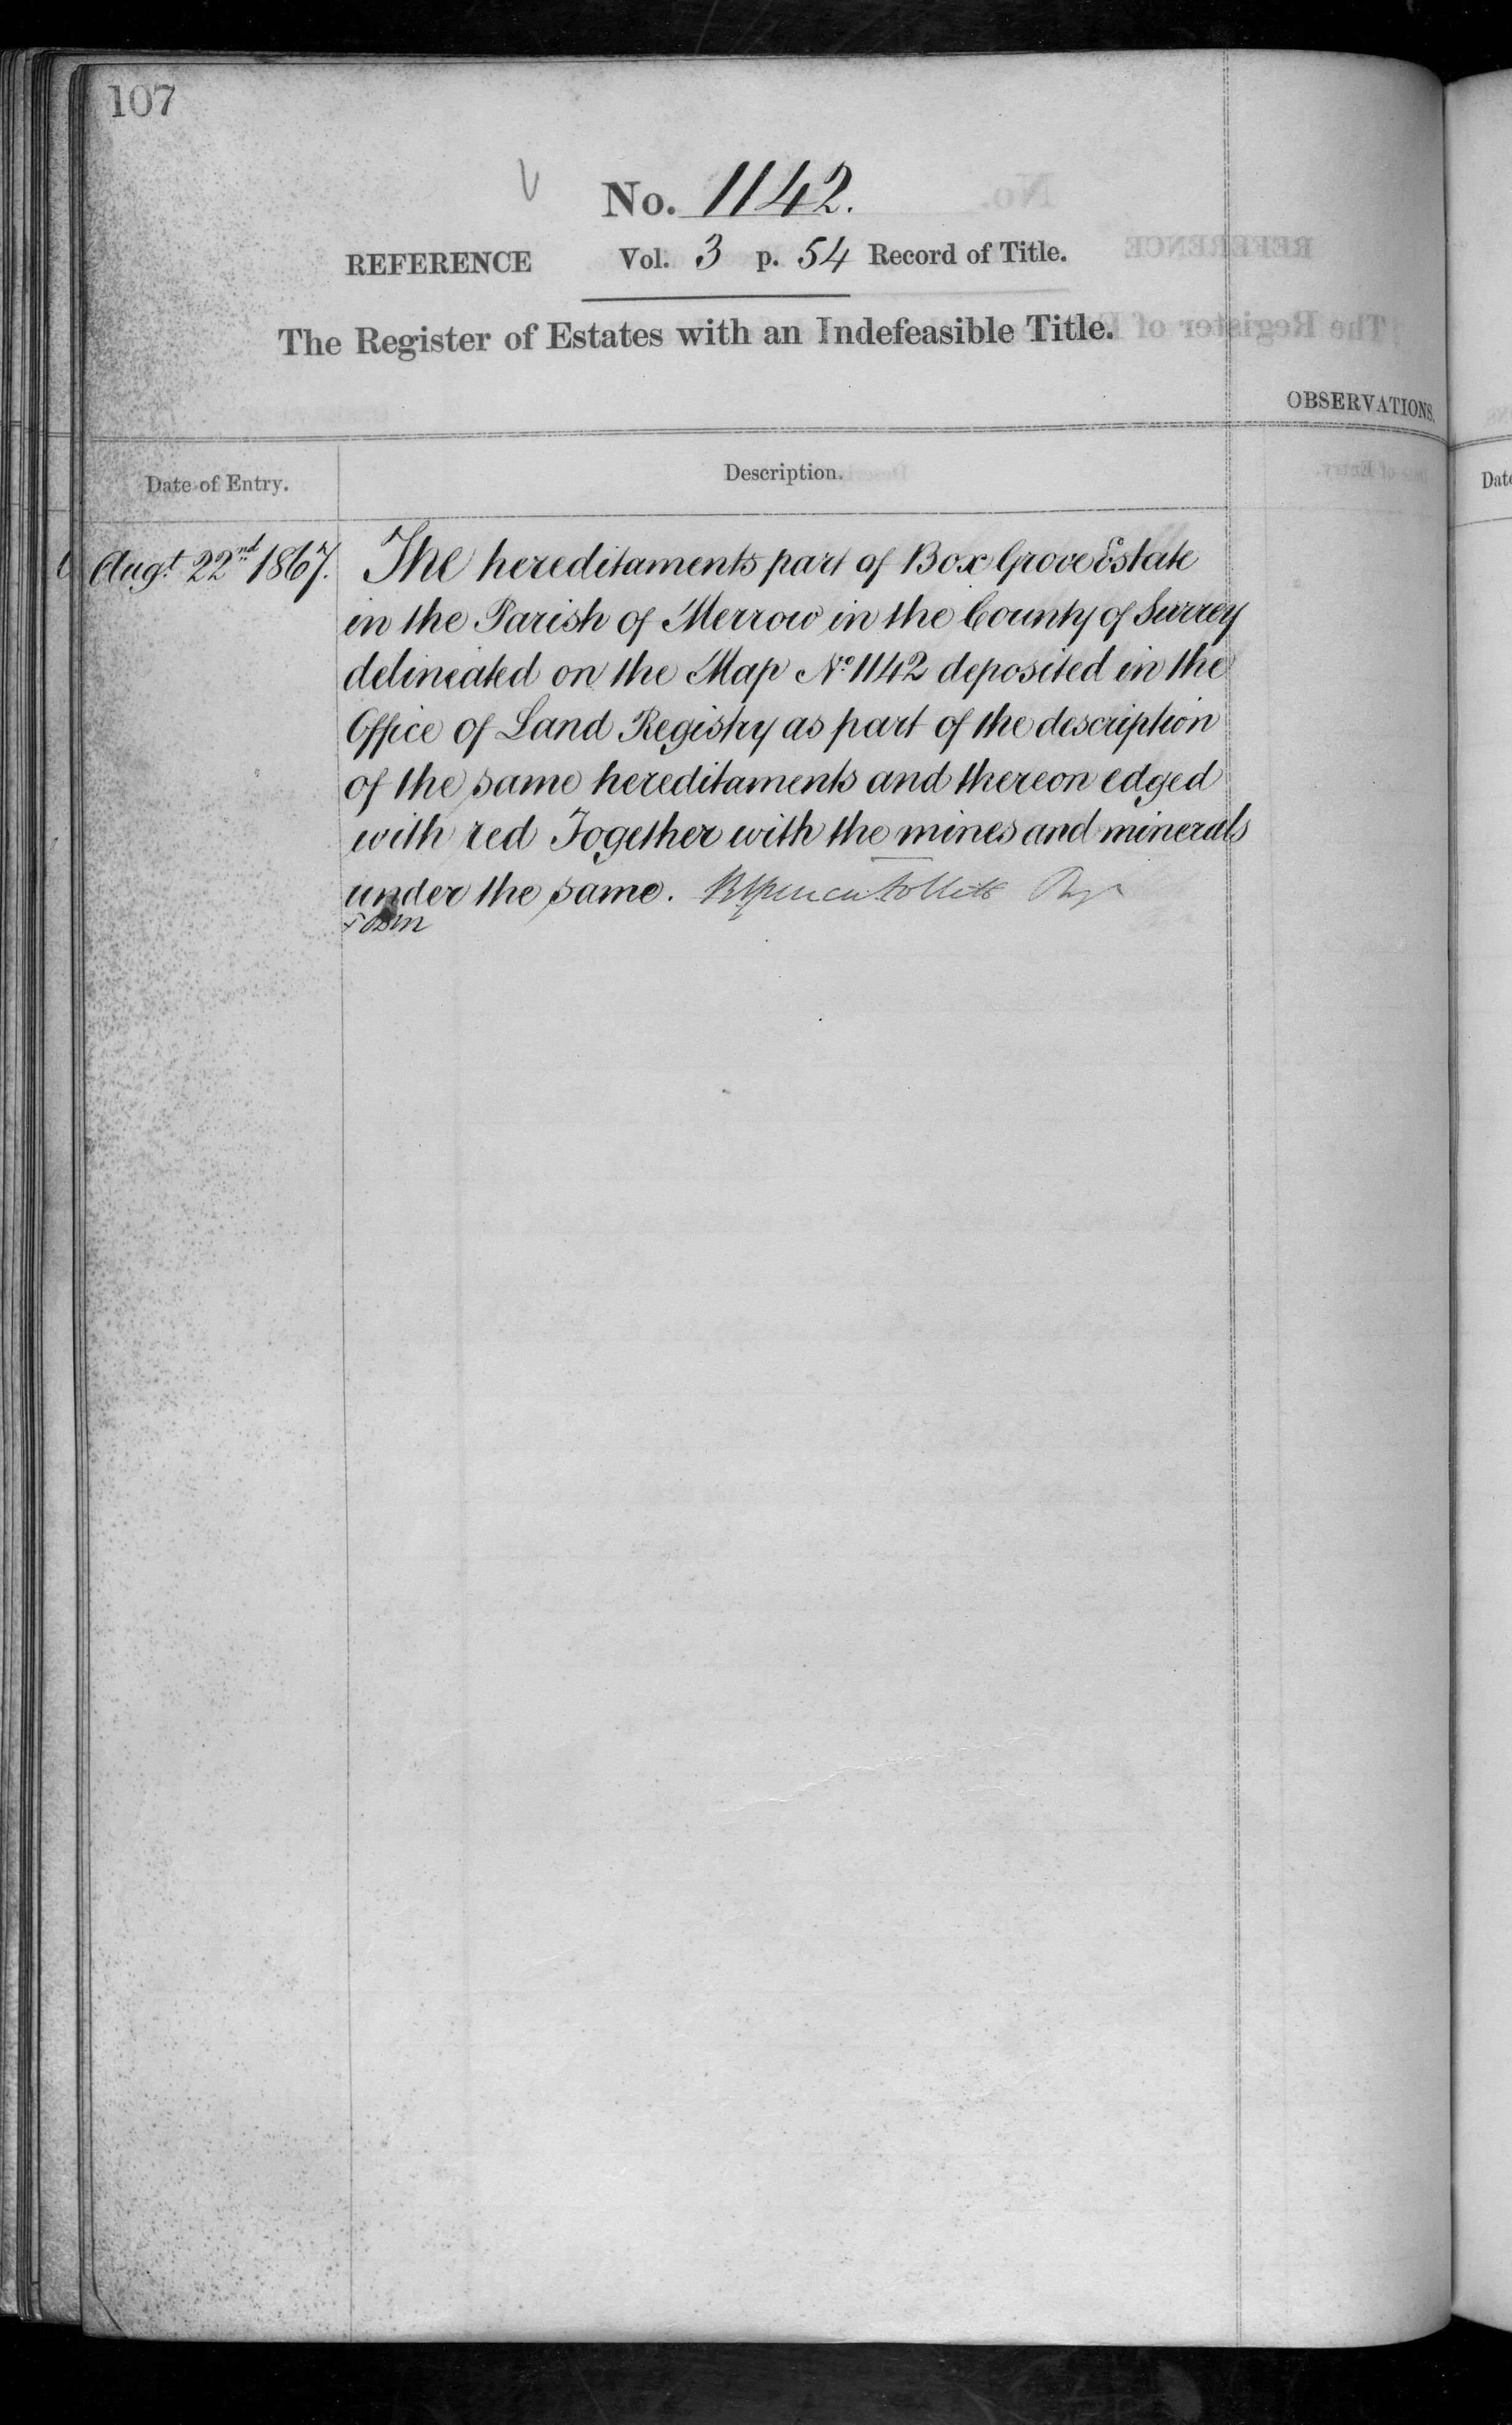 107
No. 1142.
REFERENCE Vol. 3 p. 54 Record of Title.
The Register of Estates with an Indefeasible Title.
OBSERVATIONS.
Date of Entry. Description.
Augt. 22nd 1867. The hereditaments part of Box Grove Estate
in the Parish of Merrow in the County of Surrey
delineated on the Map No. 1142 deposited in the
Office of Land Registry as part of the description
of the same hereditaments and thereon edged
with red Together with the mines and minerals
under the same.